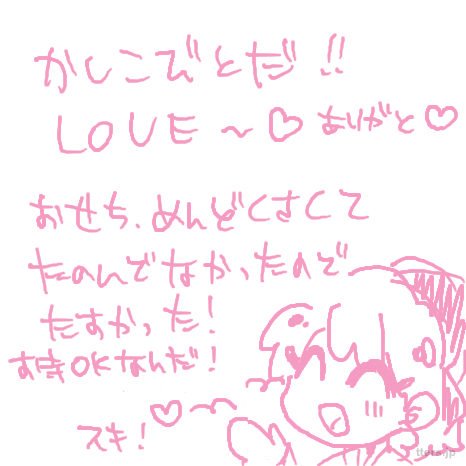 かしこびとだ!!
LOVE〜♡ ありがと♡
おせち、めんどくさくて
たのんでなかったので
たすかった!
す時OKなんだ!
♡〜
スキ!
ttets.jp